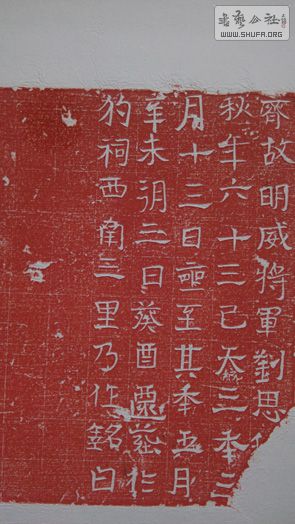 書藝公社
WWW.SHUFA.ORG
齊故明威將軍劉思
秋年六十三已天統三年三
月十三日奄至其年五月
辛未朔三日癸酉遷葬於
豹祠西南三里乃作銘曰